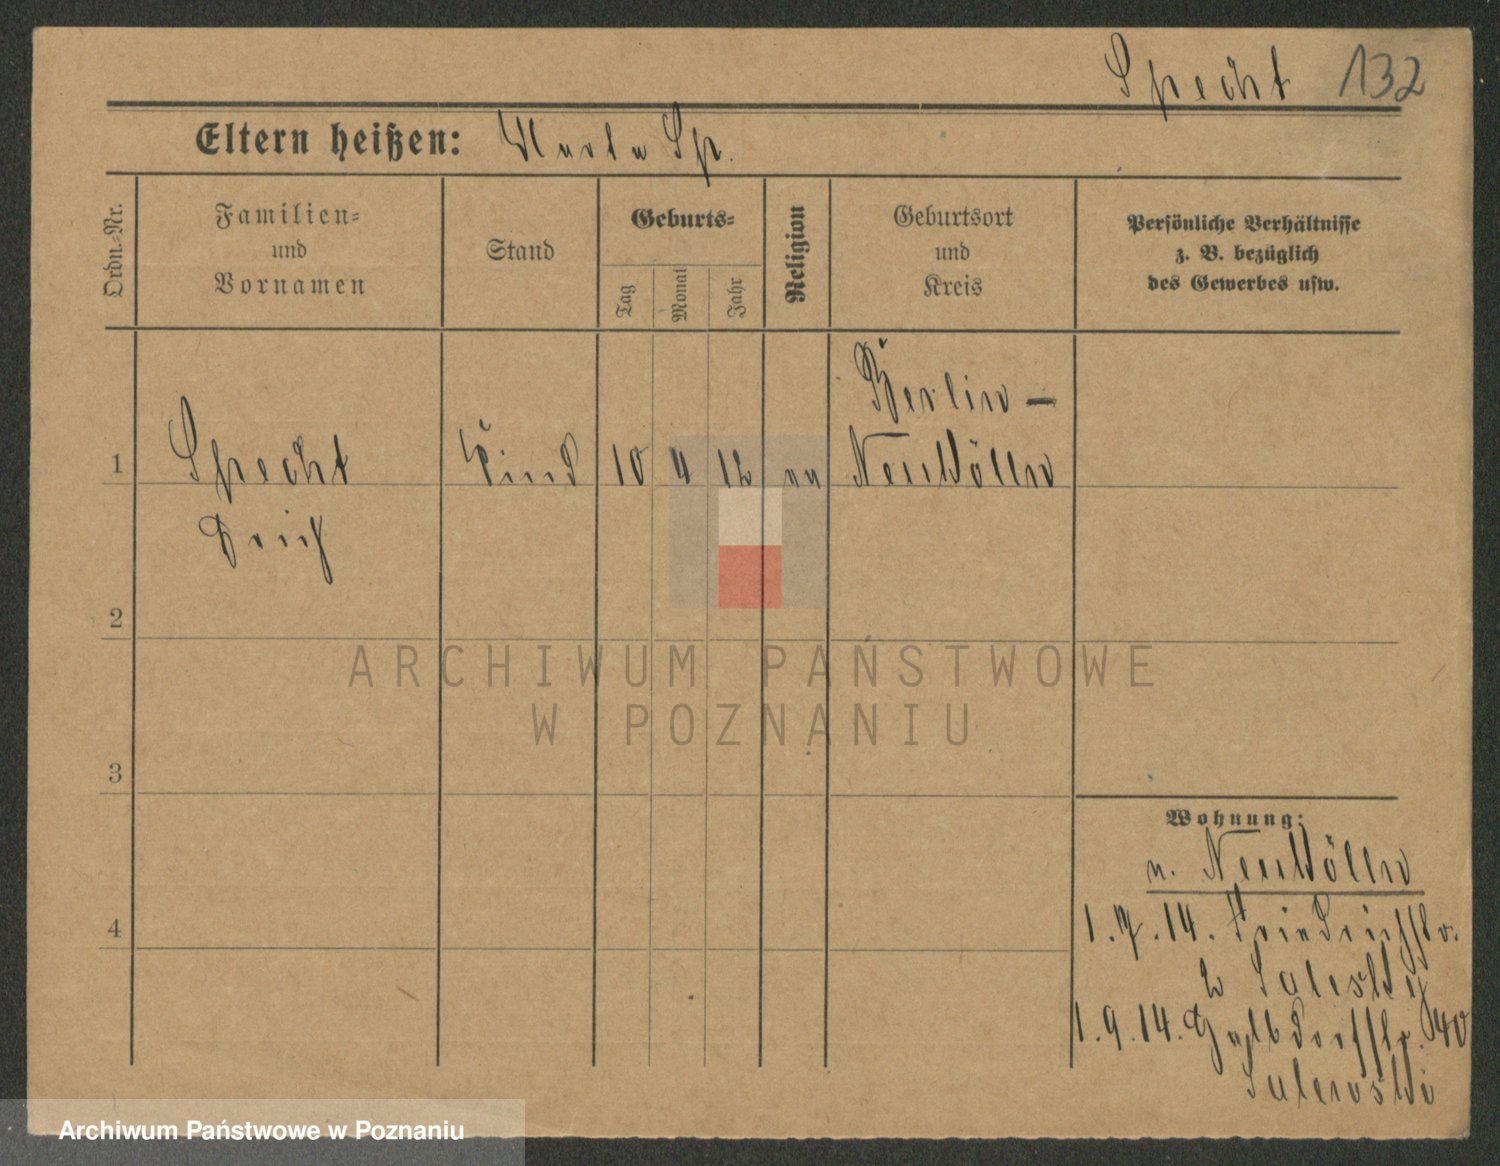 Specht 132
Eltern heißen: Marta Sp.
Ordn.-Nr.
Familien-
und
Vornamen
Stand
Geburts-
Tag
Monat
Jahr
Religion
Geburtsort
und
Kreis
Persönliche Verhältnisse
z. B. bezüglich
des Gewerbes usw.
Berlin –
1 Specht Kind 10 4 12 Neukölln
Erich
2
ARCHIWUM PAŃSTWOWE
W POZNANIU
3
Wohnung:
n. Neukölln
4
1.7.14. Friedrichstr.
2
1.9.14. 40
Archiwum Państwowe w Poznaniu